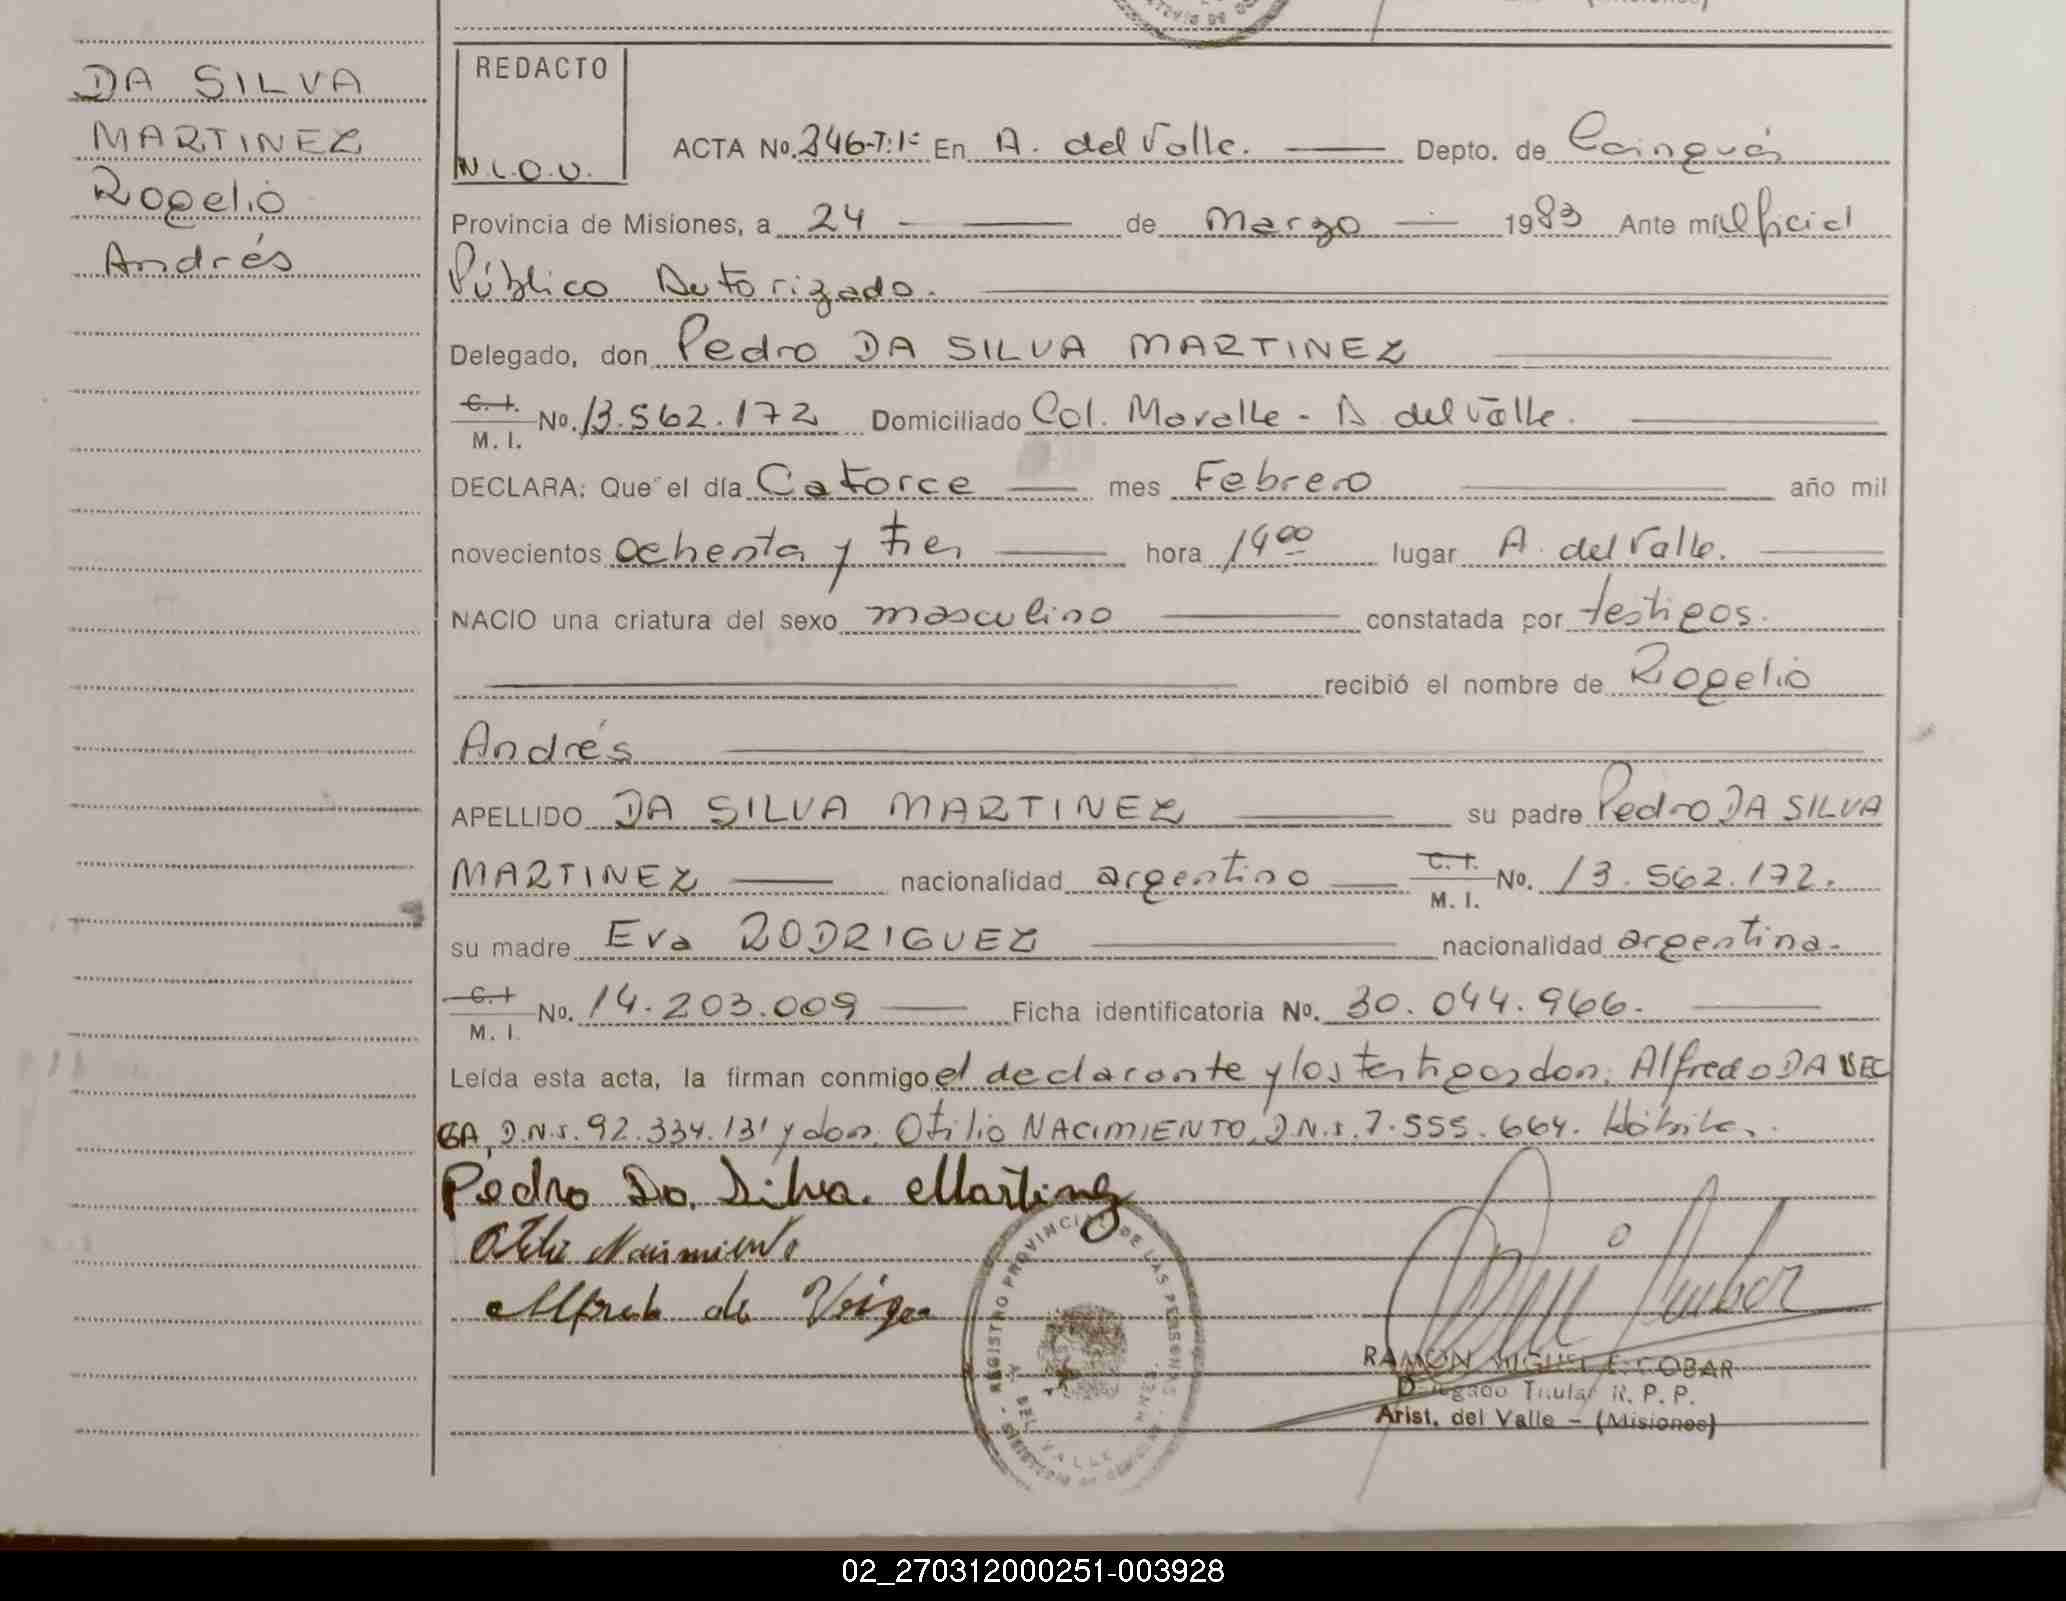 DA SILVA
MARTINEZ
Rogelio
Andrés
REDACTO
N.L.O.U.
ACTA No. 246-T:1º En A. del Valle. Depto. de Cainguás
Provincia de Misiones, a 24 de Marzo 1983 Ante mí Oficial
Público Autorizado.
Delegado, don Pedro DA SILVA MARTINEZ
C. I. M. I. No. 13.562.172 Domiciliado Col. Movalle - A del Valle.
DECLARA: Que el día Catorce mes Febrero año mil
novecientos ochenta y tres hora 14 00 lugar A. del Valle.
NACIO una criatura del sexo masculino constatada por testigos.
recibió el nombre de Rogelio
Andrés
APELLIDO DA SILVA MARTINEZ su padre Pedro DA SILVA
MARTINEZ nacionalidad argentino C. I. M. I. No. 13.562.172.
su madre Eva RODRIGUEZ nacionalidad argentina.
C. I M. I. No. 14.203.009 Ficha identificatoria No. 30.044.966.
Leída esta acta, la firman conmigo el declarante y los testigos don: Alfredo DA VEI
GA, D.N.I. 92.334.131 y don: Otilio NACIMIENTO, D.N.I. 7.555.664. Hábiles.
Pedro Da Silva Martinez
Otilio Nacimiento
Alfredo da Veiga
REGISTRO PROVINCIAL DE LAS PERSONAS
DEL VALLE
RAMON MIGUEL ESCOBAR
Delegado Titular R. P. P.
Arist. del Valle - (Misiones)
02_270312000251-003928